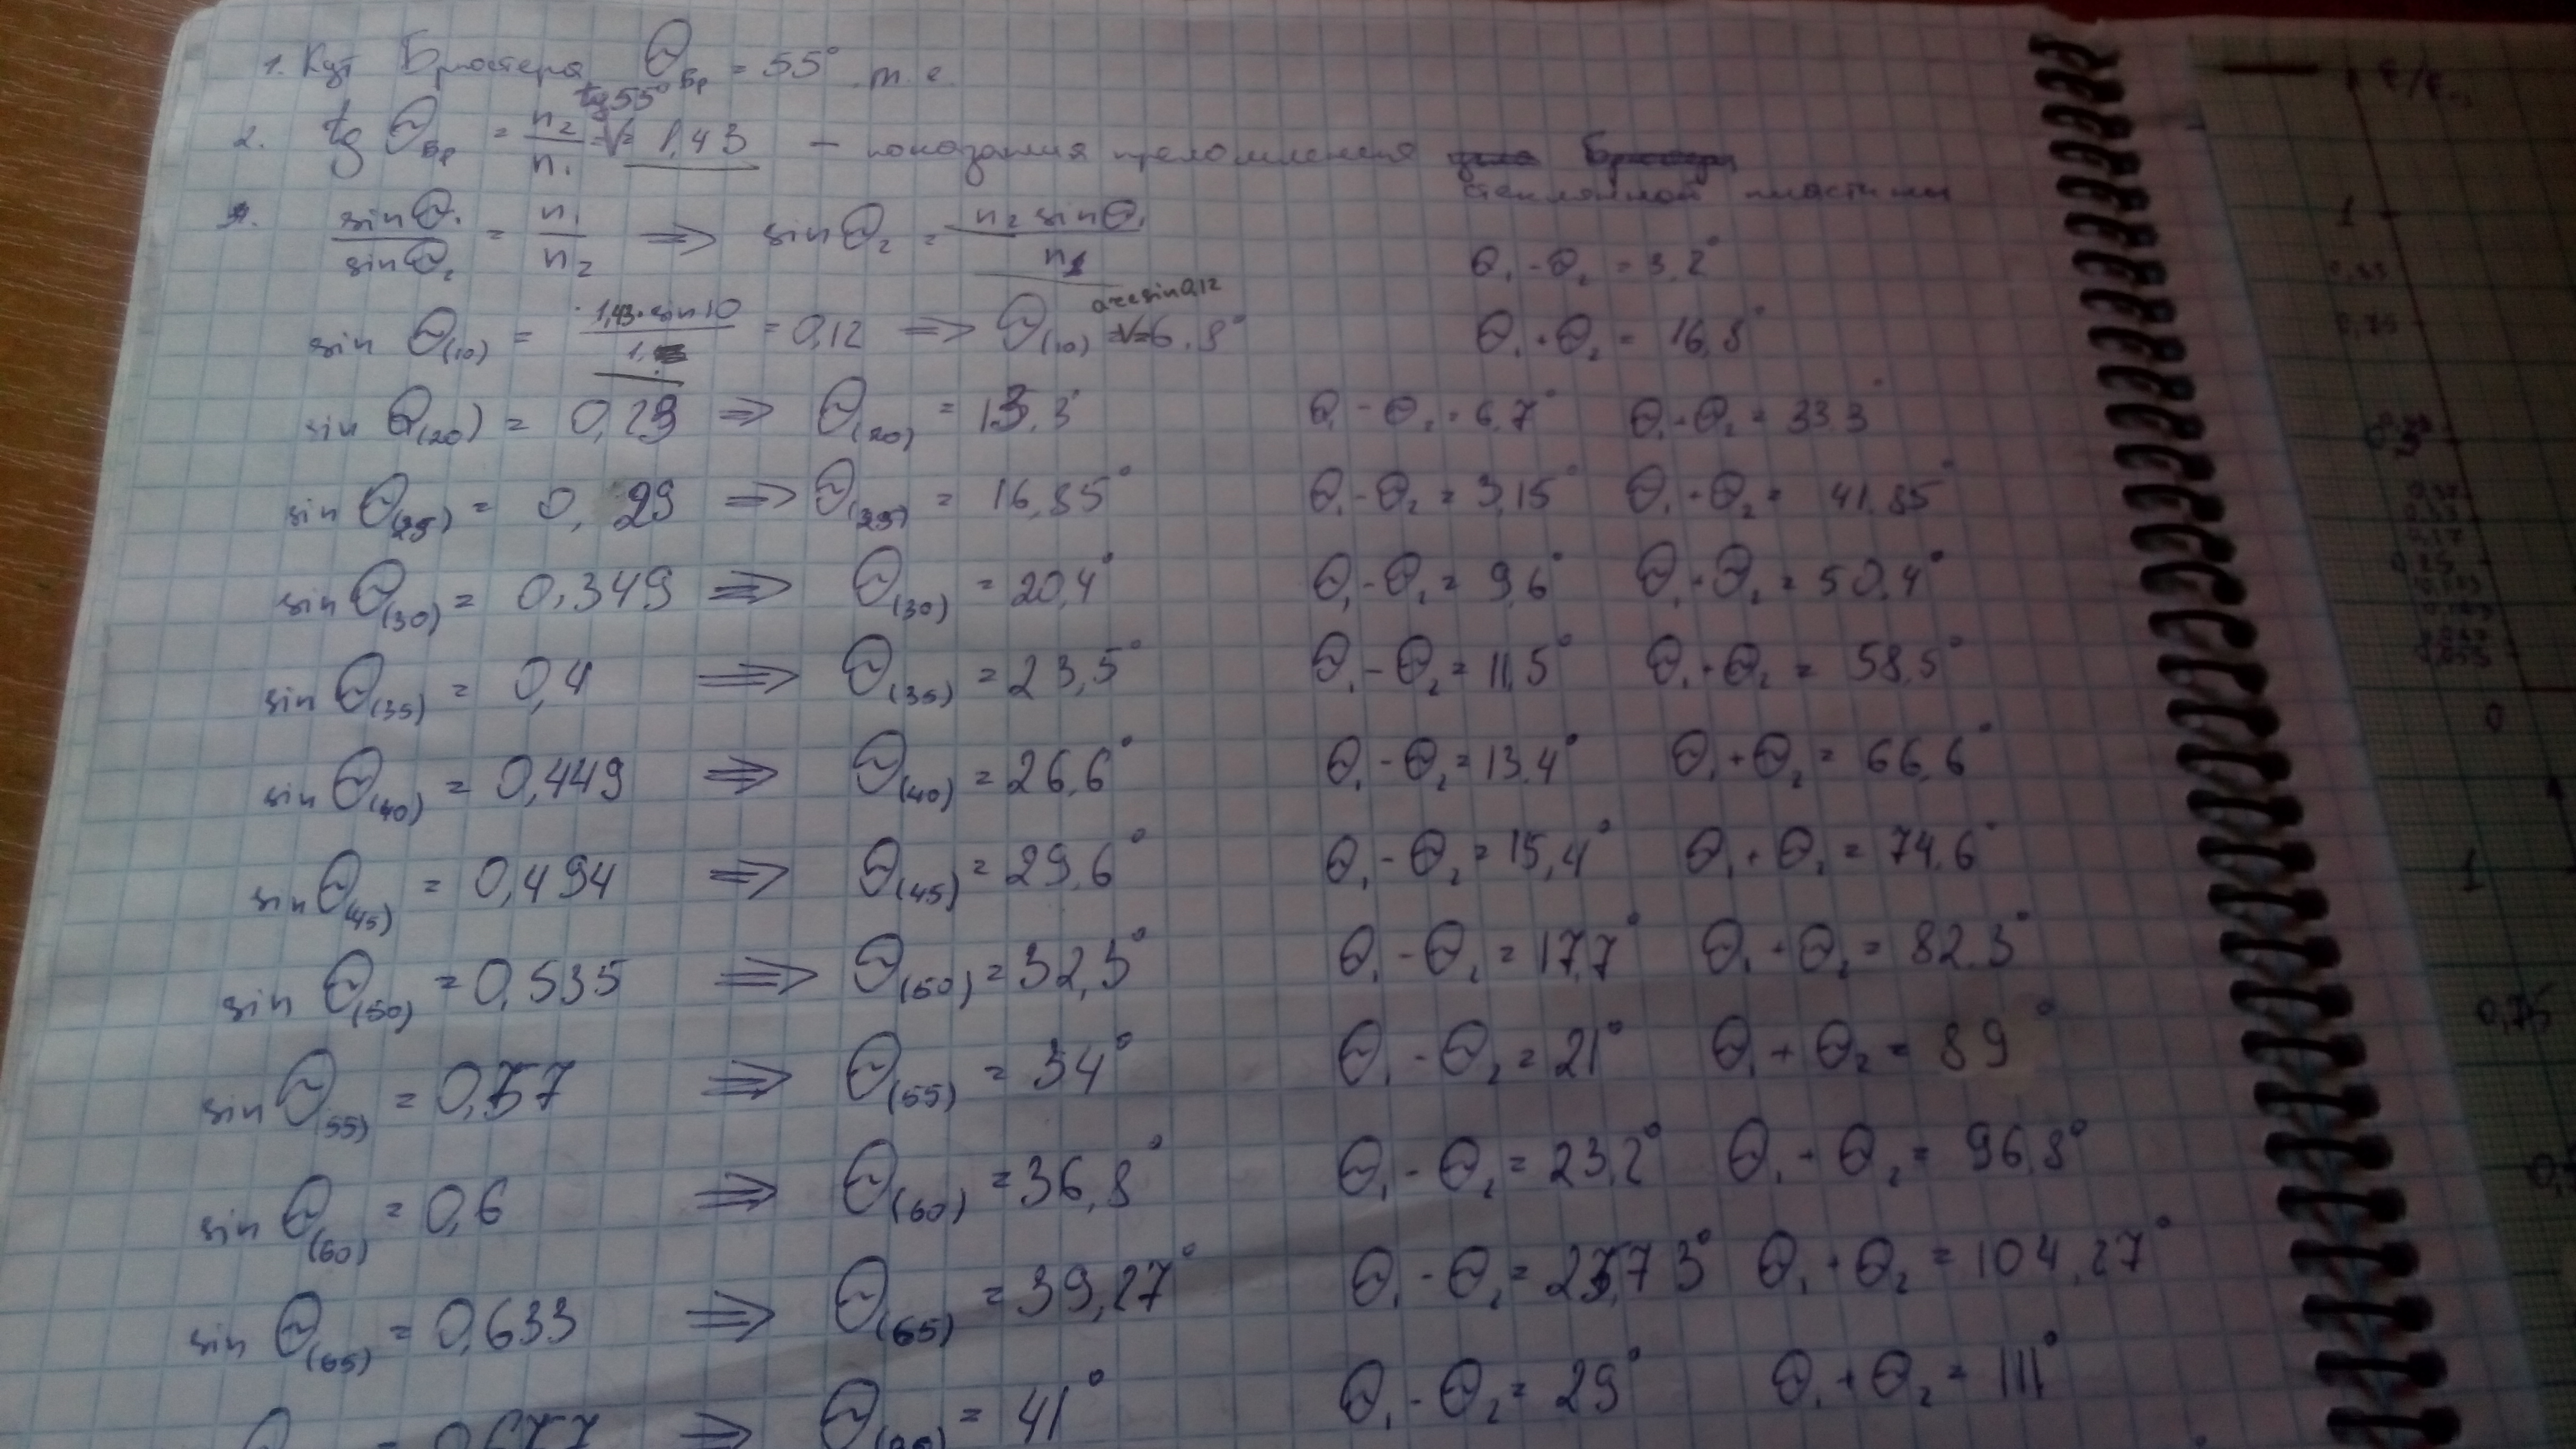 1. Кут Брюстера Θбр = 55° т.е.
2. tg Θбр = n₂/n₁ = tg 55° = 1,43 – показания преломления стеклянной пластины
sinΘ₁/sinΘ₂ = n₁/n₂ ⇒ sinΘ₂ = n₂ sinΘ₁/n₁
Θ₁ - Θ₂ = 3,2°
sin Θ(10) = 1,43·sin10/1, = 0,12 ⇒ Θ(10) = arcsin 0,12 = 6,8° Θ₁ + Θ₂ = 16,8°
sin Θ(20) = 0,23 ⇒ Θ(20) = 13,3° Θ₁ - Θ₂ = 6,7° Θ₁ + Θ₂ = 33,3°
sin Θ(25) = 0,29 ⇒ Θ(25) = 16,85° Θ₁ - Θ₂ = 3,15° Θ₁ + Θ₂ = 41,85°
sin Θ(30) = 0,349 ⇒ Θ(30) = 20,4° Θ₁ - Θ₂ = 9,6° Θ₁ + Θ₂ = 50,4°
sin Θ(35) = 0,4 ⇒ Θ(35) = 23,5° Θ₁ - Θ₂ = 11,5° Θ₁ + Θ₂ = 58,5°
sin Θ(40) = 0,449 ⇒ Θ(40) = 26,6° Θ₁ - Θ₂ = 13,4° Θ₁ + Θ₂ = 66,6°
sin Θ(45) = 0,494 ⇒ Θ(45) = 29,6° Θ₁ - Θ₂ = 15,4° Θ₁ + Θ₂ = 74,6°
sin Θ(50) = 0,535 ⇒ Θ(50) = 32,3° Θ₁ - Θ₂ = 17,7° Θ₁ + Θ₂ = 82,3°
sin Θ(55) = 0,57 ⇒ Θ(55) = 34° Θ₁ - Θ₂ = 21° Θ₁ + Θ₂ = 89°
sin Θ(60) = 0,6 ⇒ Θ(60) = 36,8° Θ₁ - Θ₂ = 23,2° Θ₁ + Θ₂ = 96,8°
sin Θ(65) = 0,633 ⇒ Θ(65) = 39,27° Θ₁ - Θ₂ = 25,73° Θ₁ + Θ₂ = 104,27°
⇒ Θ = 41° Θ₁ - Θ₂ = 29° Θ₁ + Θ₂ = 111°
1
0,75
0
1
0,75